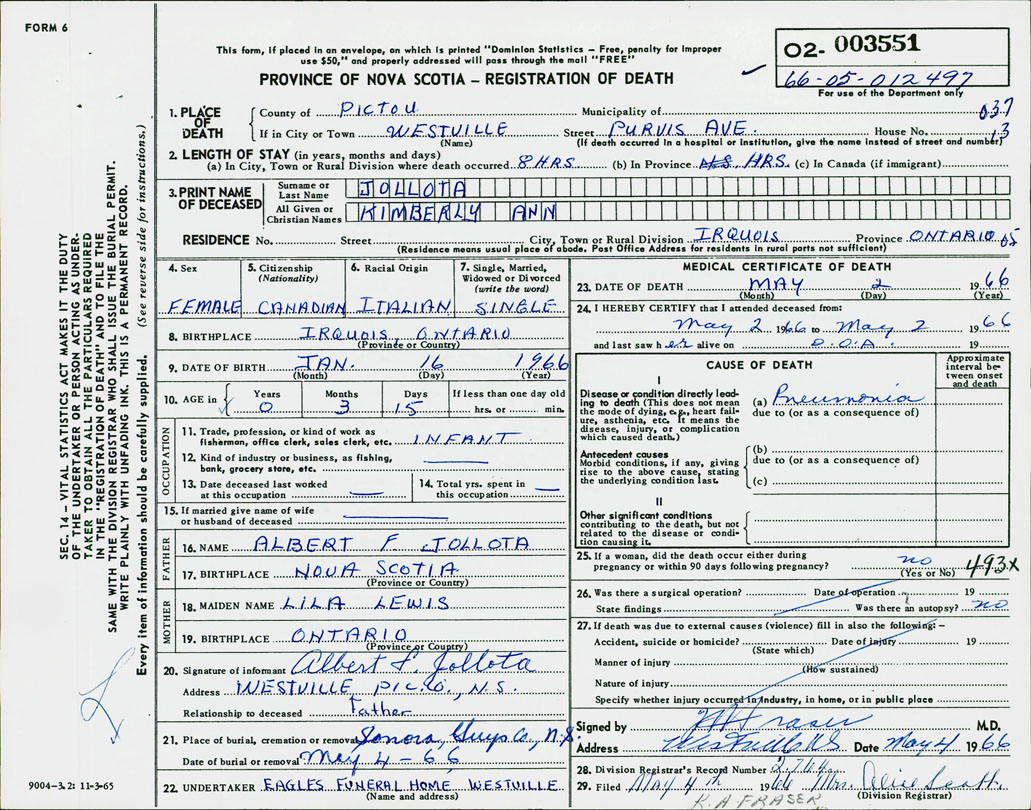 FORM 6
This form, if placed in an envelope, on which is printed "Dominion Statistics – Free, penalty for improper
use $50," and properly addressed will pass through the mail "FREE"
PROVINCE OF NOVA SCOTIA – REGISTRATION OF DEATH
02- 003551
66-05-012497
For use of the Department only
1. PLACE OF DEATH
County of PICTOU Municipality of 037
If in City or Town WESTVILLE Street PURVIS AVE. House No. 13
(Name) (If death occurred in a hospital or institution, give the name instead of street and number)
2. LENGTH OF STAY (in years, months and days)
(a) In City, Town or Rural Division where death occurred 8 HRS (b) In Province HRS. (c) In Canada (if immigrant)
3. PRINT NAME OF DECEASED
Surname or Last Name JOLLOTA
All Given or Christian Names KIMBERLY ANN
RESIDENCE No. Street City, Town or Rural Division IRQUOIS Province ONTARIO 05
(Residence means usual place of abode. Post Office Address for residents in rural parts not sufficient)
4. Sex FEMALE
5. Citizenship (Nationality) CANADIAN
6. Racial Origin ITALIAN
7. Single, Married, Widowed or Divorced (write the word) SINGLE
8. BIRTHPLACE IRQUOIS, ONTARIO
(Province or Country)
9. DATE OF BIRTH JAN. 16 1966
(Month) (Day) (Year)
10. AGE in Years 0 Months 3 Days 15 If less than one day old hrs. or min.
OCCUPATION
11. Trade, profession, or kind of work as fisherman, office clerk, sales clerk, etc. INFANT
12. Kind of industry or business, as fishing, bank, grocery store, etc.
13. Date deceased last worked at this occupation
14. Total yrs. spent in this occupation
15. If married give name of wife or husband of deceased
FATHER
16. NAME ALBERT F. JOLLOTA
17. BIRTHPLACE NOVA SCOTIA
(Province or Country)
MOTHER
18. MAIDEN NAME LILA LEWIS
19. BIRTHPLACE ONTARIO
(Province or Country)
20. Signature of informant Albert F. Jollota
Address WESTVILLE PIC. CO., N.S.
Relationship to deceased Father
21. Place of burial, cremation or removal Sonora, Guys Co., N.S.
Date of burial or removal May 4 - 66
22. UNDERTAKER EAGLES FUNERAL HOME WESTVILLE
(Name and address)
MEDICAL CERTIFICATE OF DEATH
23. DATE OF DEATH MAY 2 1966
(Month) (Day) (Year)
24. I HEREBY CERTIFY that I attended deceased from:
May 2 1966 to May 2 1966
and last saw her alive on D.O.A. 19
CAUSE OF DEATH
Approximate interval between onset and death
I
Disease or condition directly leading to death (This does not mean the mode of dying, e.g., heart failure, asthenia, etc. It means the disease, injury, or complication which caused death.)
(a) Pneumonia
due to (or as a consequence of)
Antecedent causes
Morbid conditions, if any, giving rise to the above cause, stating the underlying condition last.
(b)
due to (or as a consequence of)
(c)
II
Other significant conditions
contributing to the death, but not related to the disease or condition causing it.
25. If a woman, did the death occur either during
pregnancy or within 90 days following pregnancy? no 493x
(Yes or No)
26. Was there a surgical operation? Date of operation 19
State findings Was there an autopsy? no
27. If death was due to external causes (violence) fill in also the following: –
Accident, suicide or homicide? Date of injury 19
(State which)
Manner of injury
(How sustained)
Nature of injury
Specify whether injury occurred in industry, in home, or in public place
Signed by Fraser M.D.
Address Westville NS Date May 4 1966
28. Division Registrar's Record Number
29. Filed May 4th 1966 Mrs. Alice Scott.
(Division Registrar)
K.A FRASER
SEC. 14 – VITAL STATISTICS ACT MAKES IT THE DUTY
OF THE UNDERTAKER OR PERSON ACTING AS UNDER-
TAKER TO OBTAIN ALL THE PARTICULARS REQUIRED
IN THE "REGISTRATION OF DEATH" AND TO FILE THE
SAME WITH THE DIVISION REGISTRAR WHO SHALL ISSUE THE BURIAL PERMIT.
WRITE PLAINLY WITH UNFADING INK. THIS IS A PERMANENT RECORD.
Every item of information should be carefully supplied. (See reverse side for instructions.)
9004-3.2: 11-3-65